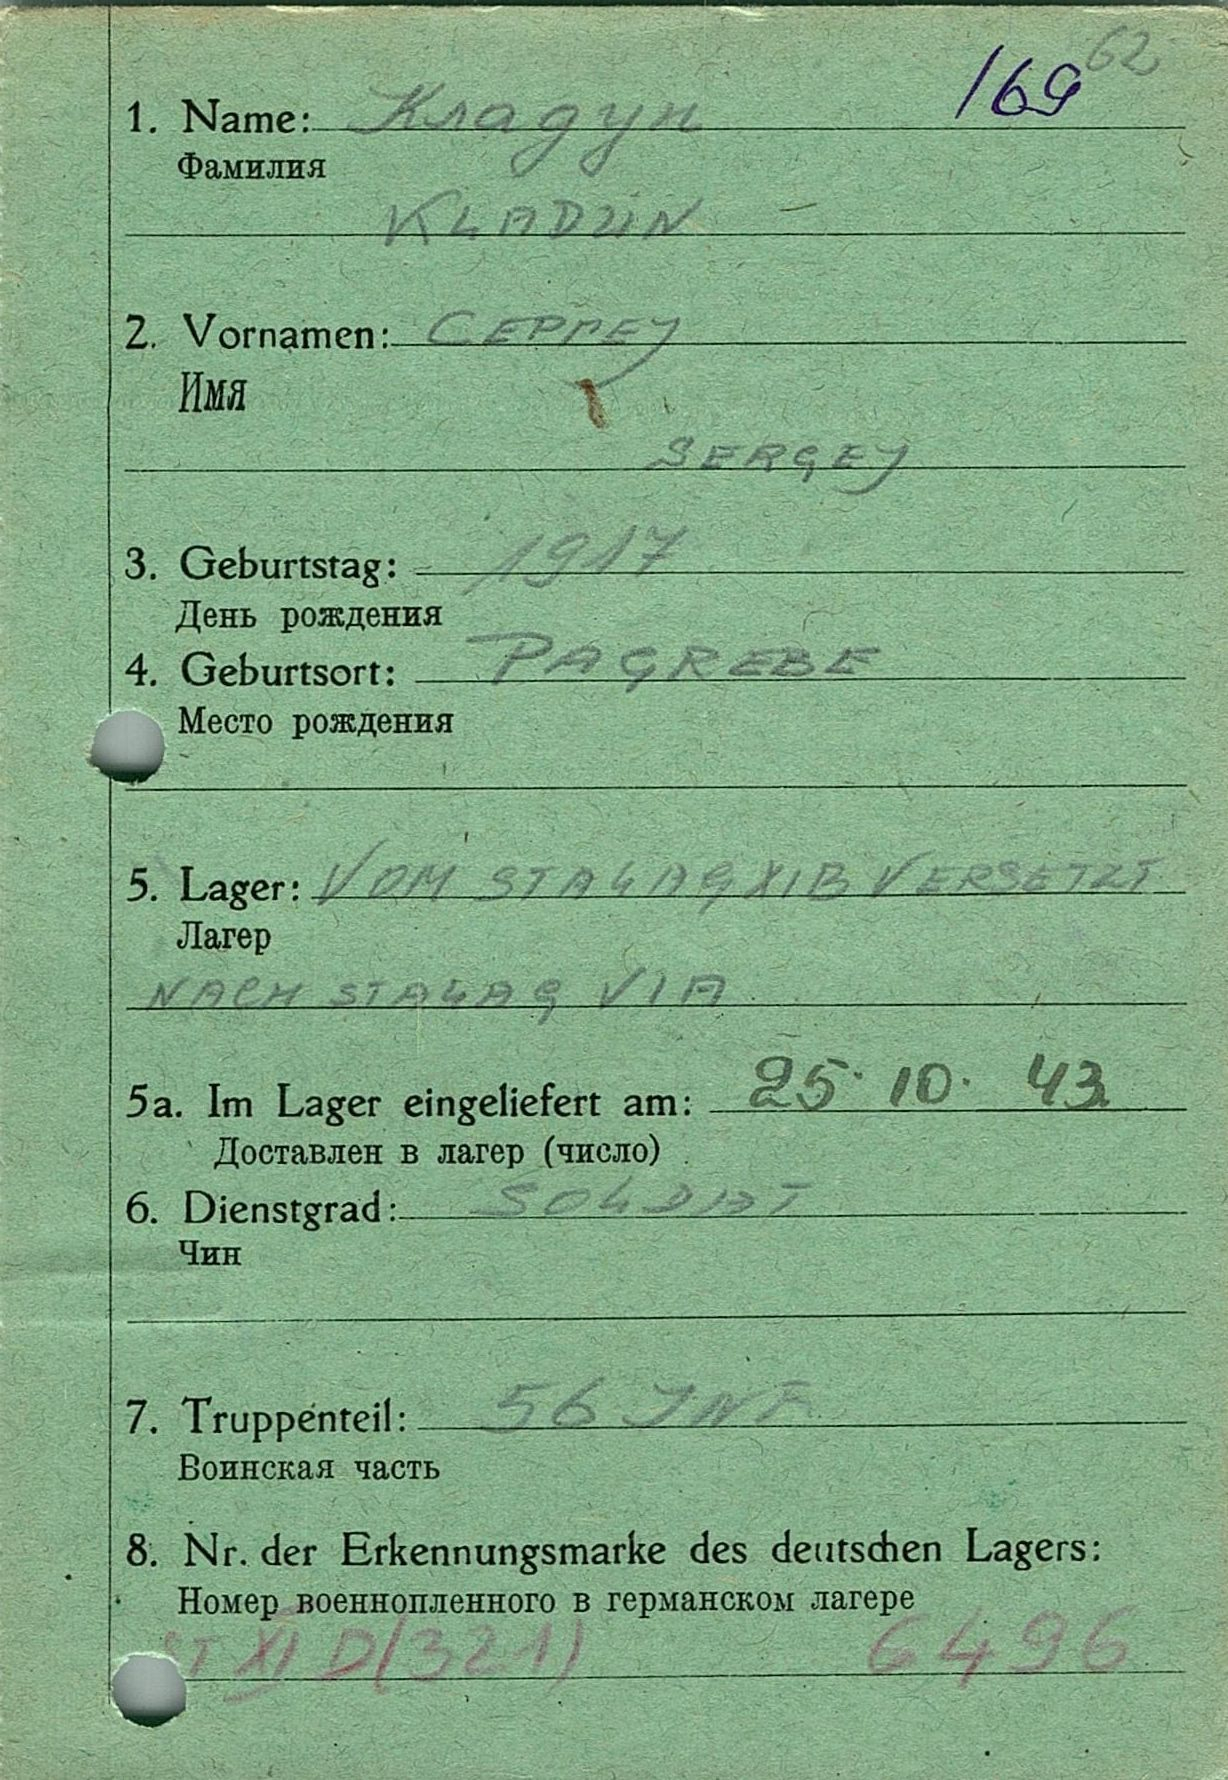 62
169
1. Name: Кладун
Фамилия
KLADUN
2. Vornamen: СЕРГЕJ
Имя
SERGEJ
3. Geburtstag: 1917
День рождения
4. Geburtsort: PAGREBE
Место рождения
5. Lager: VOM STALAG XIB VERSETZT
Лагер
NACH STALAG VIA
5a. Im Lager eingeliefert am: 25. 10. 43.
Доставлен в лагер (число)
6. Dienstgrad: SOLDAT
Чин
7. Truppenteil: 56 INF.
Воинская часть
8. Nr. der Erkennungsmarke des deutschen Lagers:
Номер военнопленного в германском лагере
ST XI D (321) 6496